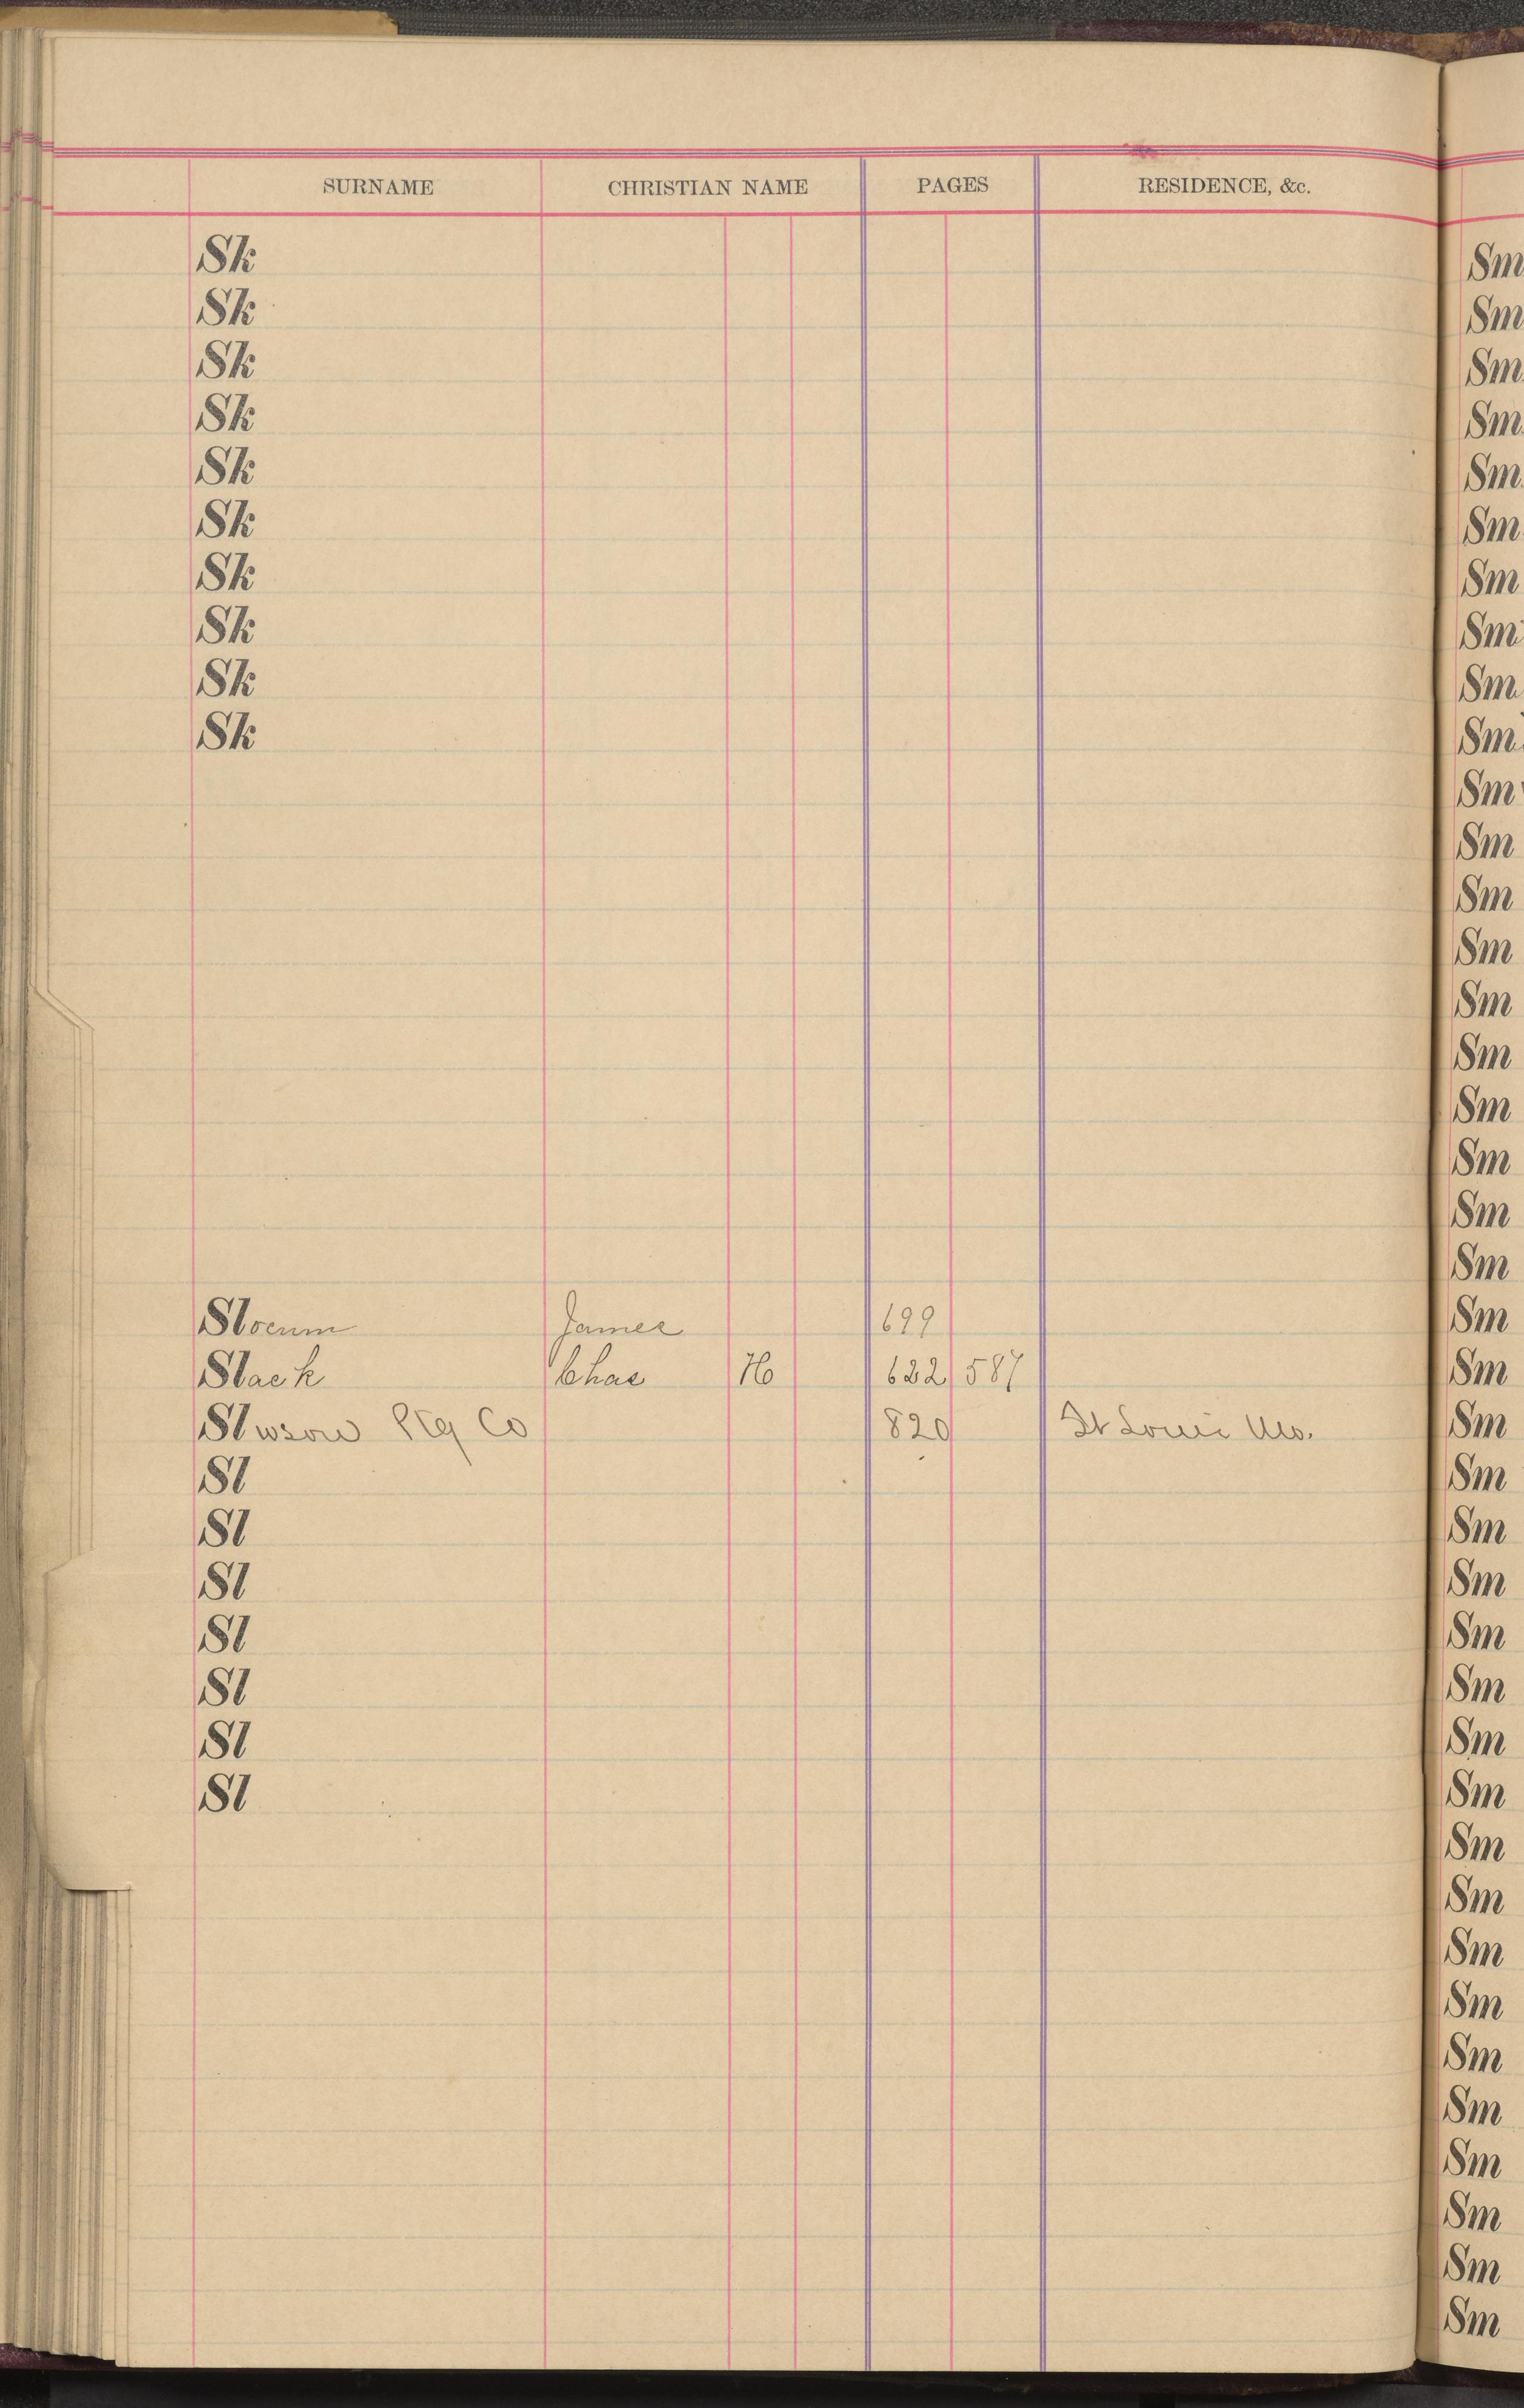 SURNAME CHRISTIAN NAME PAGES RESIDENCE, &c.
Sk
Sk
Sk
Sk
Sk
Sk
Sk
Sk
Sk
Sk
Slocum James 699
Slack Chas H 622 587
Ptg Co 820 St Louis Mo.
Sl
Sl
Sl
Sl
Sl
Sl
Sl
Sm
Sm
Sm
Sm
Sm
Sm
Sm
Sm
Sm
Sm
Sm
Sm
Sm
Sm
Sm
Sm
Sm
Sm
Sm
Sm
Sm
Sm
Sm
Sm
Sm
Sm
Sm
Sm
Sm
Sm
Sm
Sm
Sm
Sm
Sm
Sm
Sm
Sm
Sm
Sm